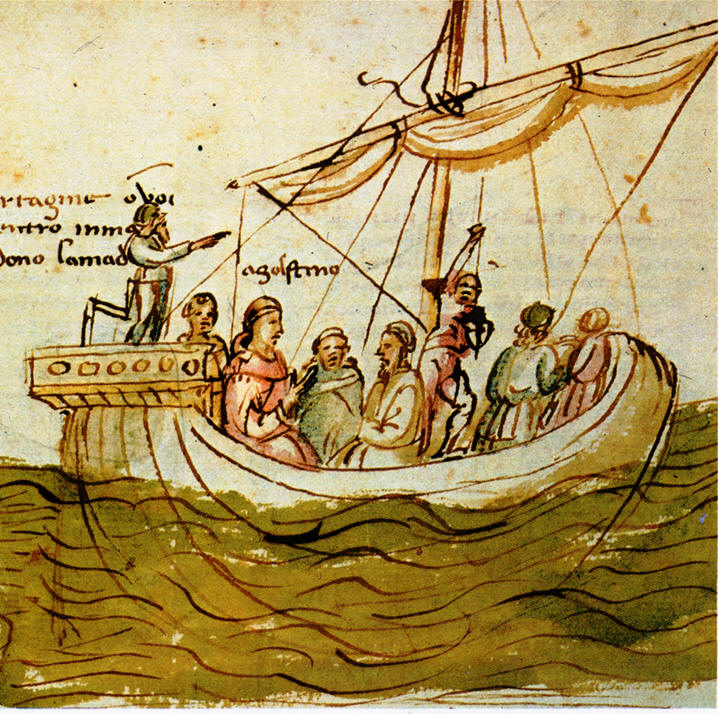 rtagine o voi
entro inma
dono lamad
agostino